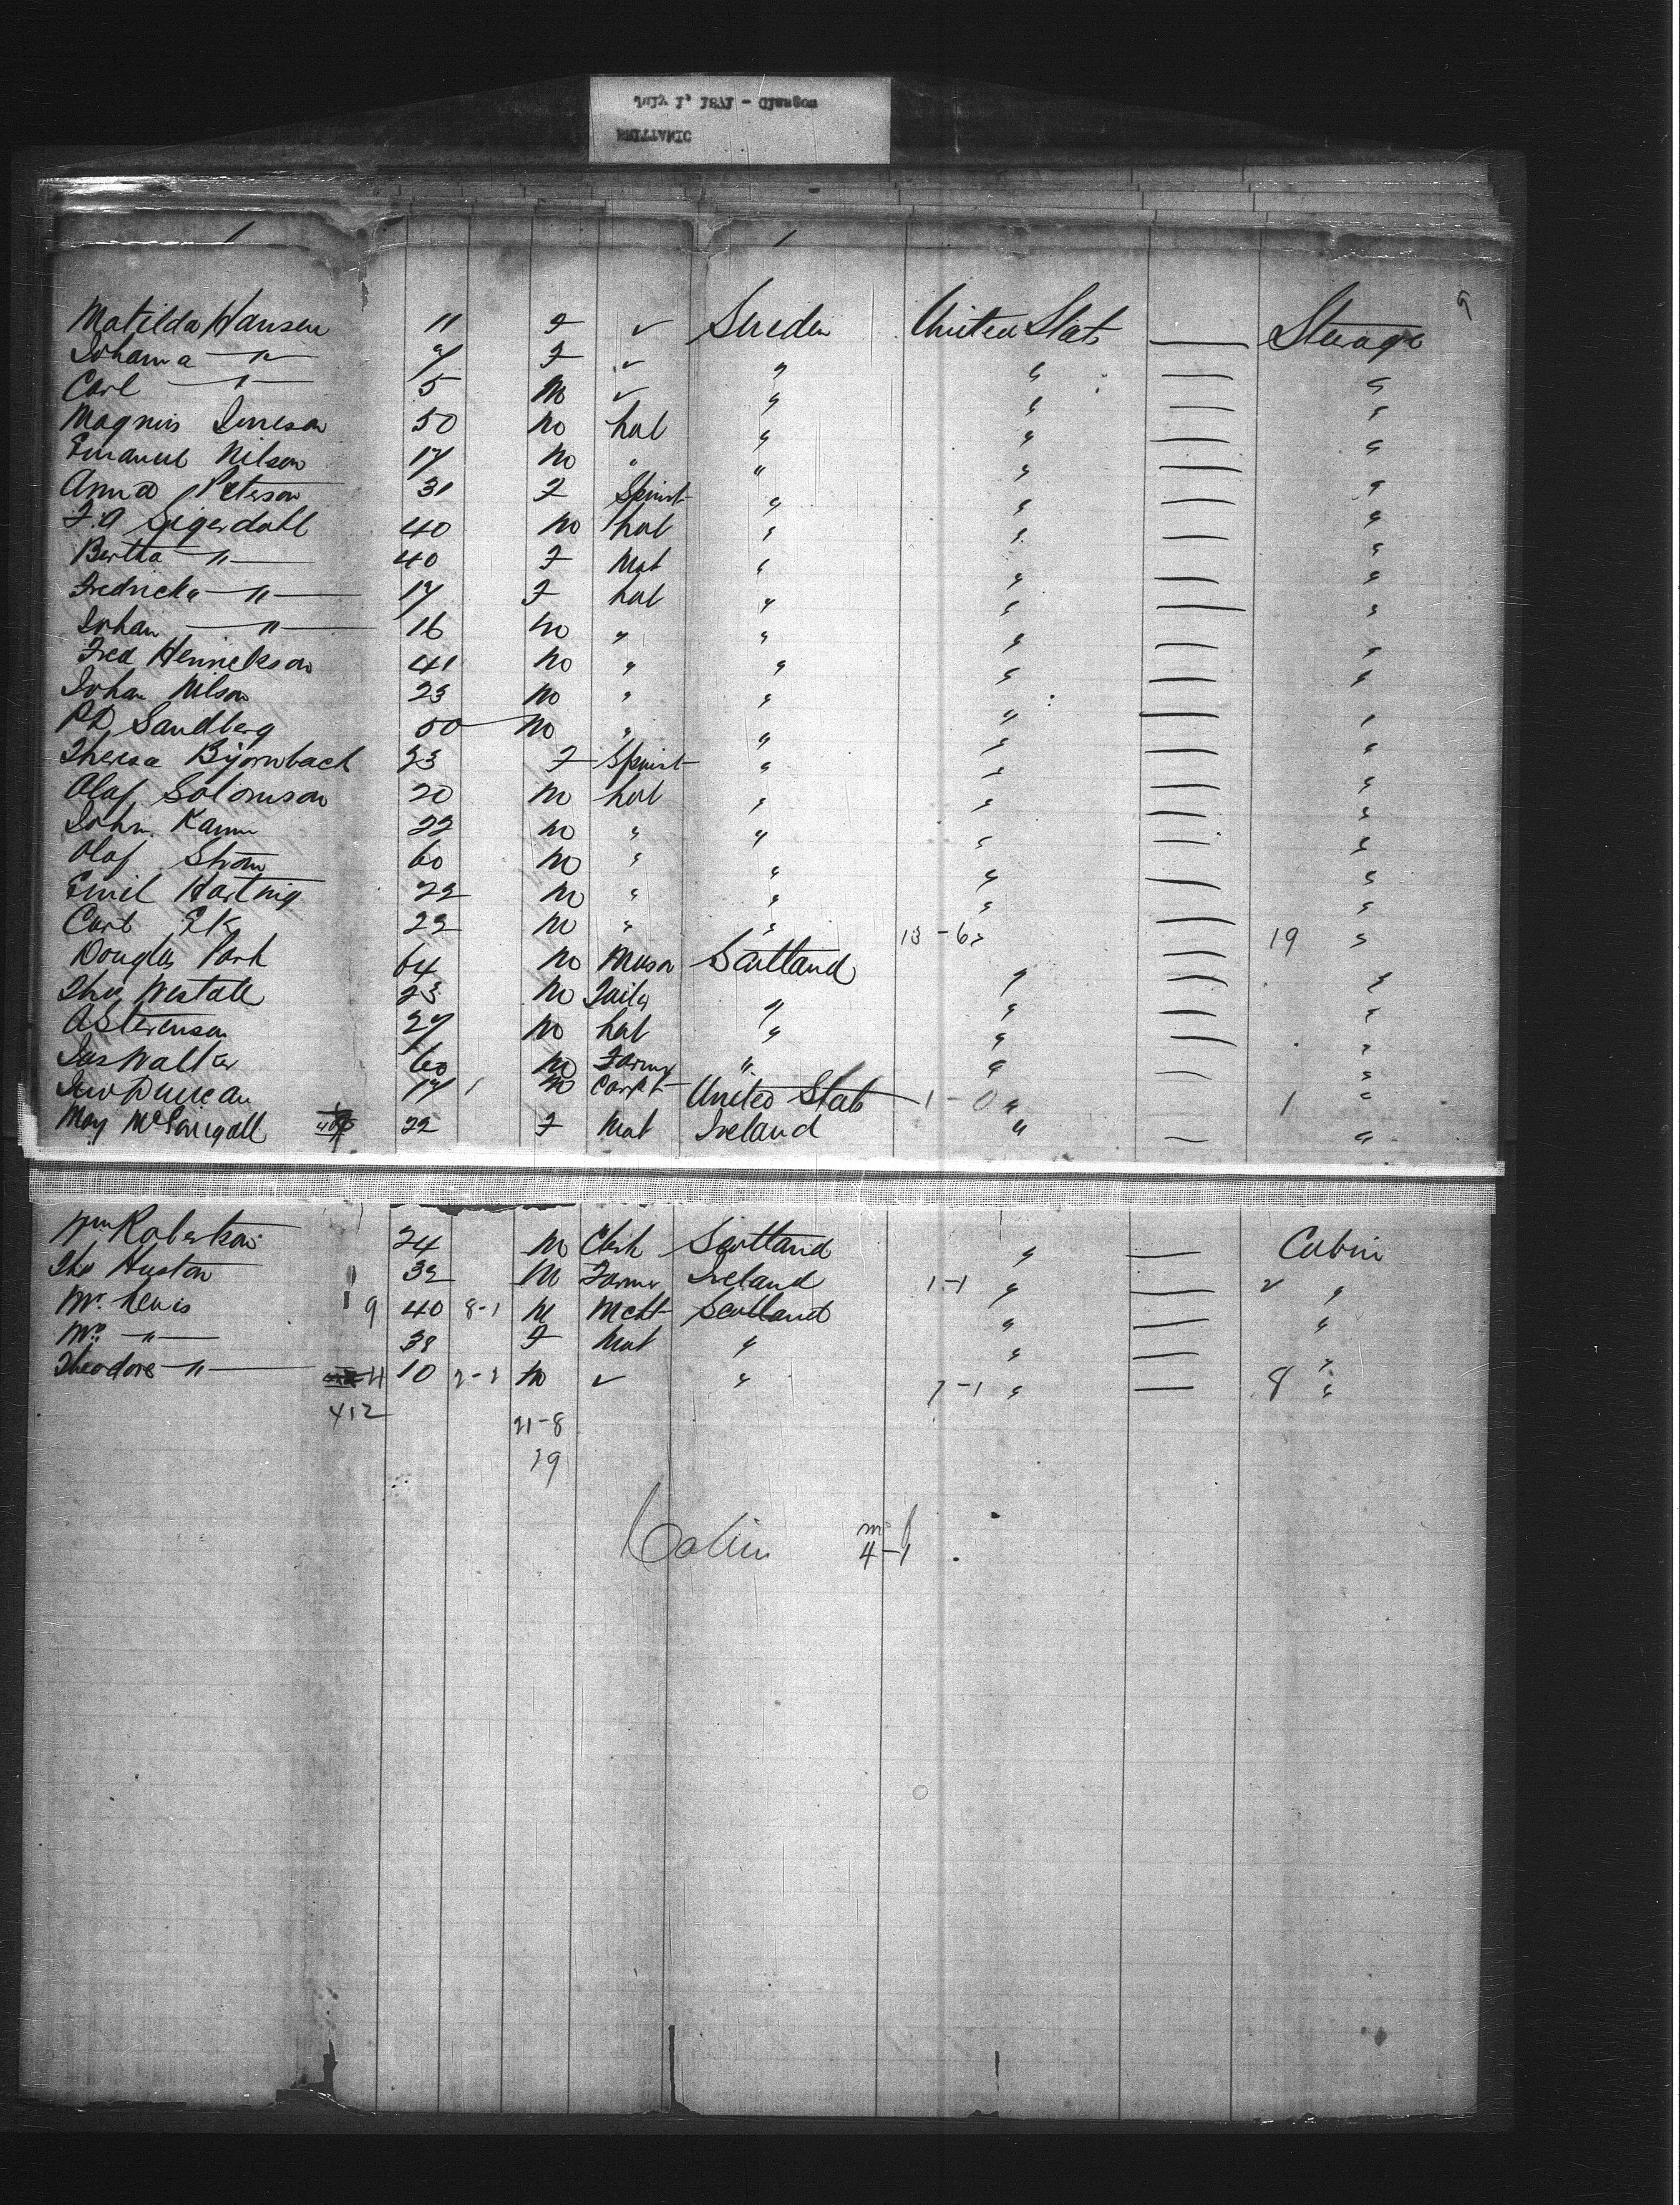 9
Matilda Hansen 11 F ✓ Sweden United Stat — Steerage
Johanna " 9 F ✓ " " — "
Carl " 5 M ✓ " " — "
Magnus 50 M Lab " " — "
Emanuel Nilson 17 M " " " — "
Anna Peterson 31 F Spinst " " — "
F.A Sigerdahl 40 M Lab " " — "
Bertha " 40 F Mat " " — "
Fredricka " 17 F Lab " " — "
Johan " 16 M " " " — "
Fred Henrickson 41 M " " " — "
Johan Nilson 23 M " " " — "
PD Sandberg 50 M " " " — "
Theresa Bjornbach 23 F Spinst " " — "
Olaf Solomson 20 M Lab " " — "
John 22 M " " " — "
Olaf Strom 60 M " " " — "
Emil Hartnig 22 M " " " — "
Carl Ek 22 M " " 13-6 " — 19 "
Douglas Park 64 M Mason Scotland " — "
Tho Westall 23 M Tailr " " — "
A Stevenson 27 M Lab " " — "
Jas Walker 60 M Farmr " " — "
Jno Duncan 17 1 M Carpt United Stats 1-0 " 1 "
May 22 F Mat Ireland " — "
Wm Robertson 24 M Clerk Scotland " — Cabin
Tho Huston 32 M Farmer Ireland 1-1 " — 2 "
Mr. Lewis 9 40 8-1 M Mcht Scotland " — "
Mrs " 38 F Mat " " — "
Theodore " 4 10 2-2 M ✓ " 7-1 " — 8 "
412 21-8
19
Cabin m f
4-1